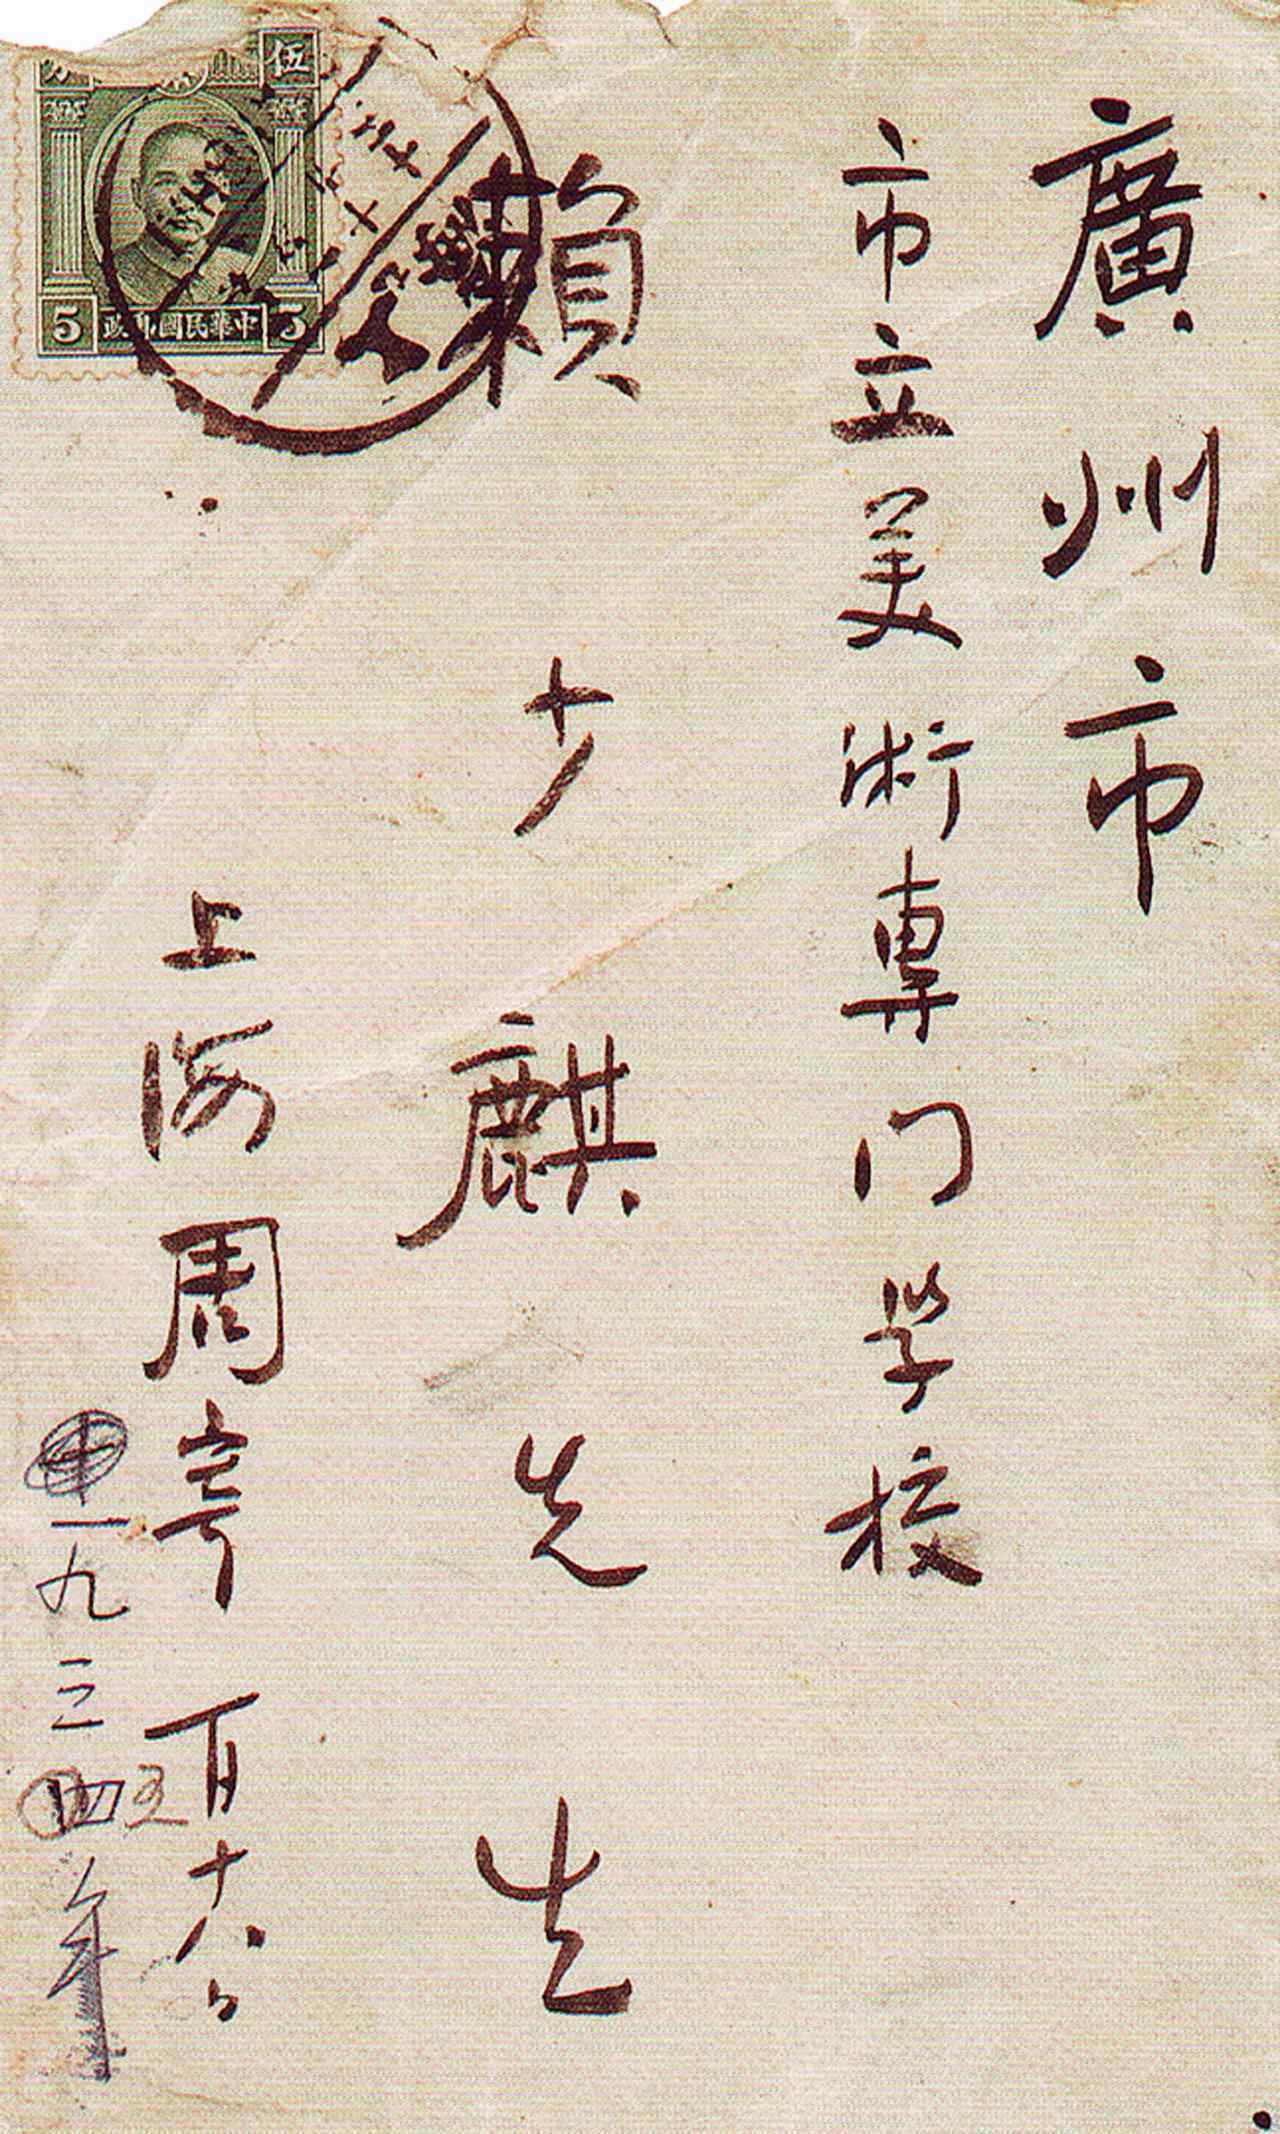 廣州市
市立美術專门学校
賴少麒先生
上海周寄 一月十八日
一九三四五年
伍
5 中華民國郵政 5